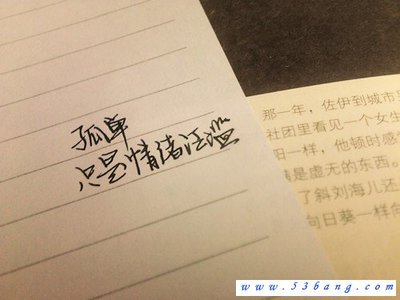 孤单
只是情绪泛滥
那一年，佐伊到城市
社团里看见一个女生
阳一样，他顿时感
情是虚无的东西。
了斜刘海儿还
向日葵一样向
www.53bang.com